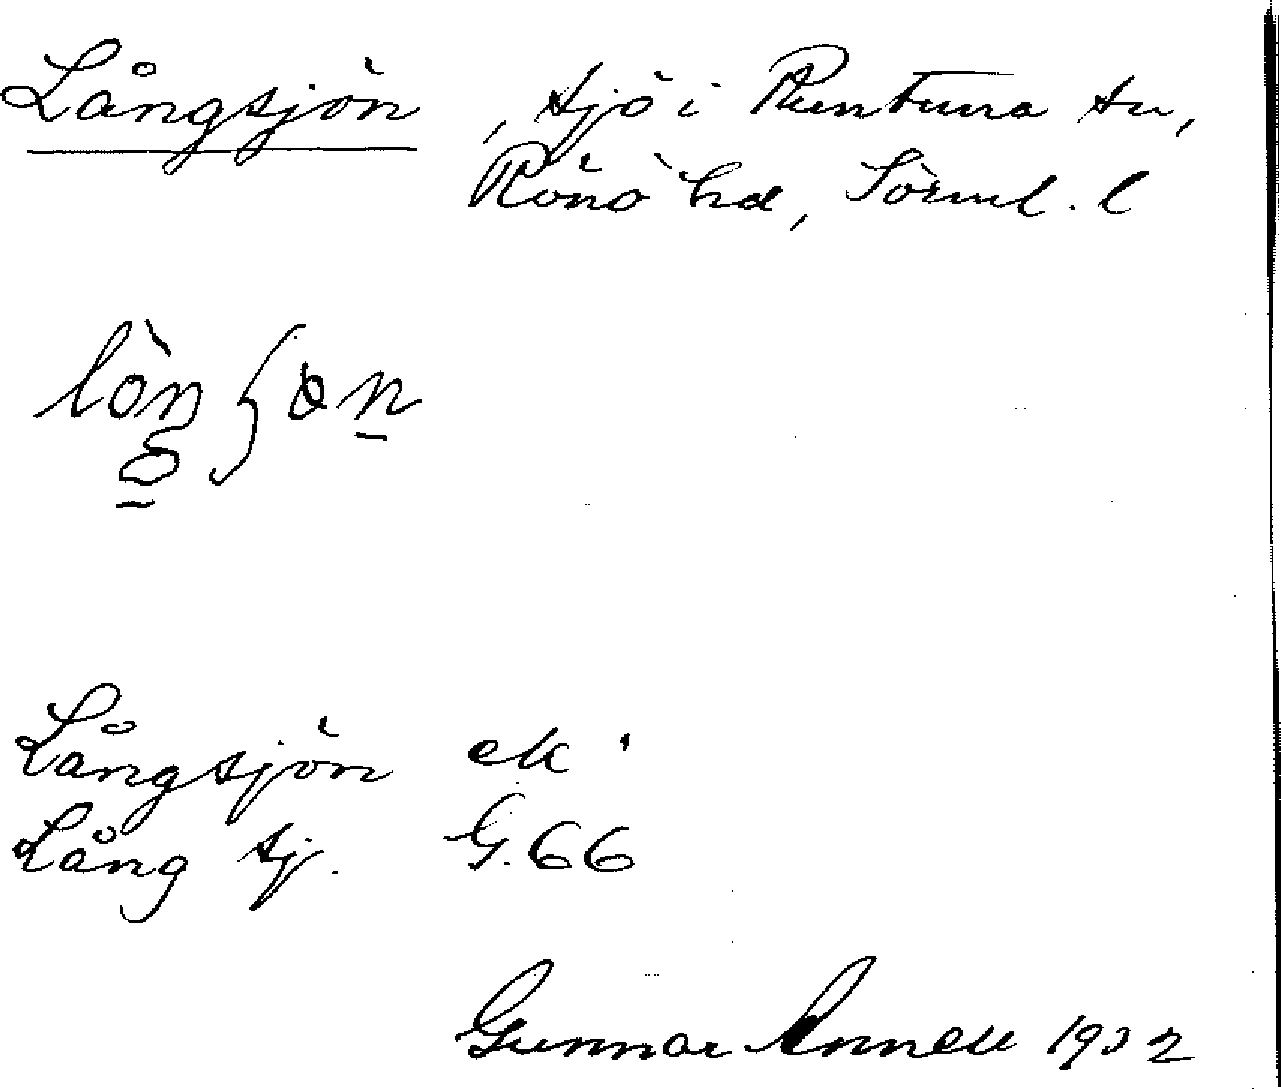 Långsjön, sjö i Runtuna sn,
Rönö hd, Sörml. l
Långsjön ek
Lång sj. G. 66
Gunnar Annell 1932